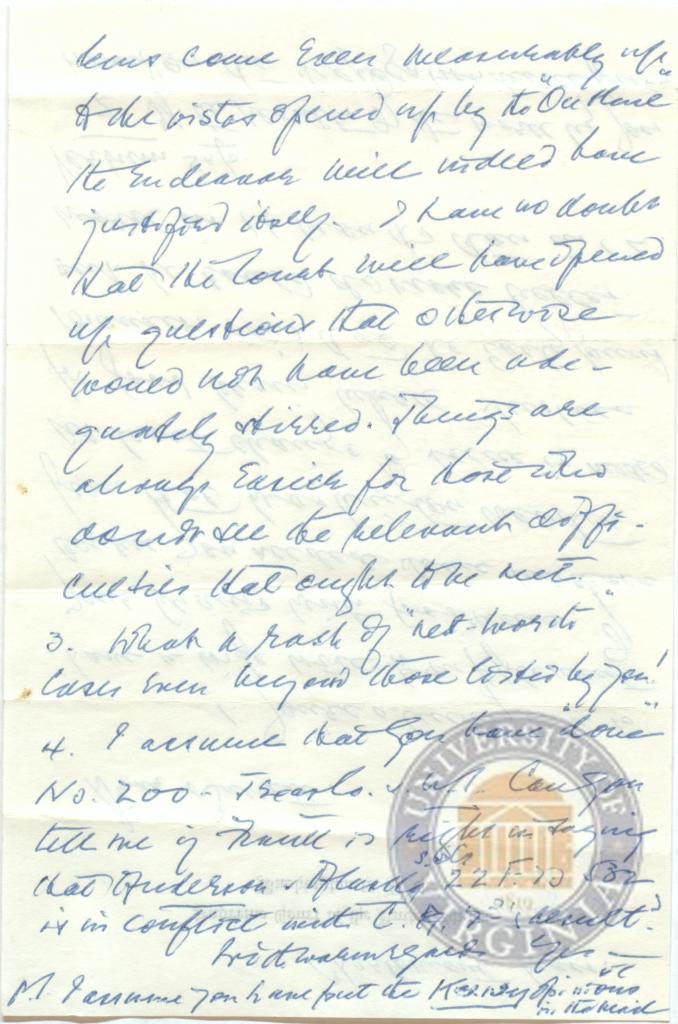 come even measurably up
to the vistas opened up by the "Outline"
the Endeavor will indeed have
justified itself. I have no doubt
that the Court will have opened
up questions that otherwise
would not have been ade-
quately stirred. Things are
always easier for those who
do not see the relevant diffi-
culties that ought to be met.
3. What a rash of "net-worth"
cases even beyond those listed by you!
4. I assume that you have "done"
No. 200 - Can you
tell me if is right in saying
that Anderson v. 22 F. 2d 532
is in conflict with C.A. 7 - result?
With warm regards
P.S. I assume you have put the opinions
UNIVERSITY OF VIRGINIA